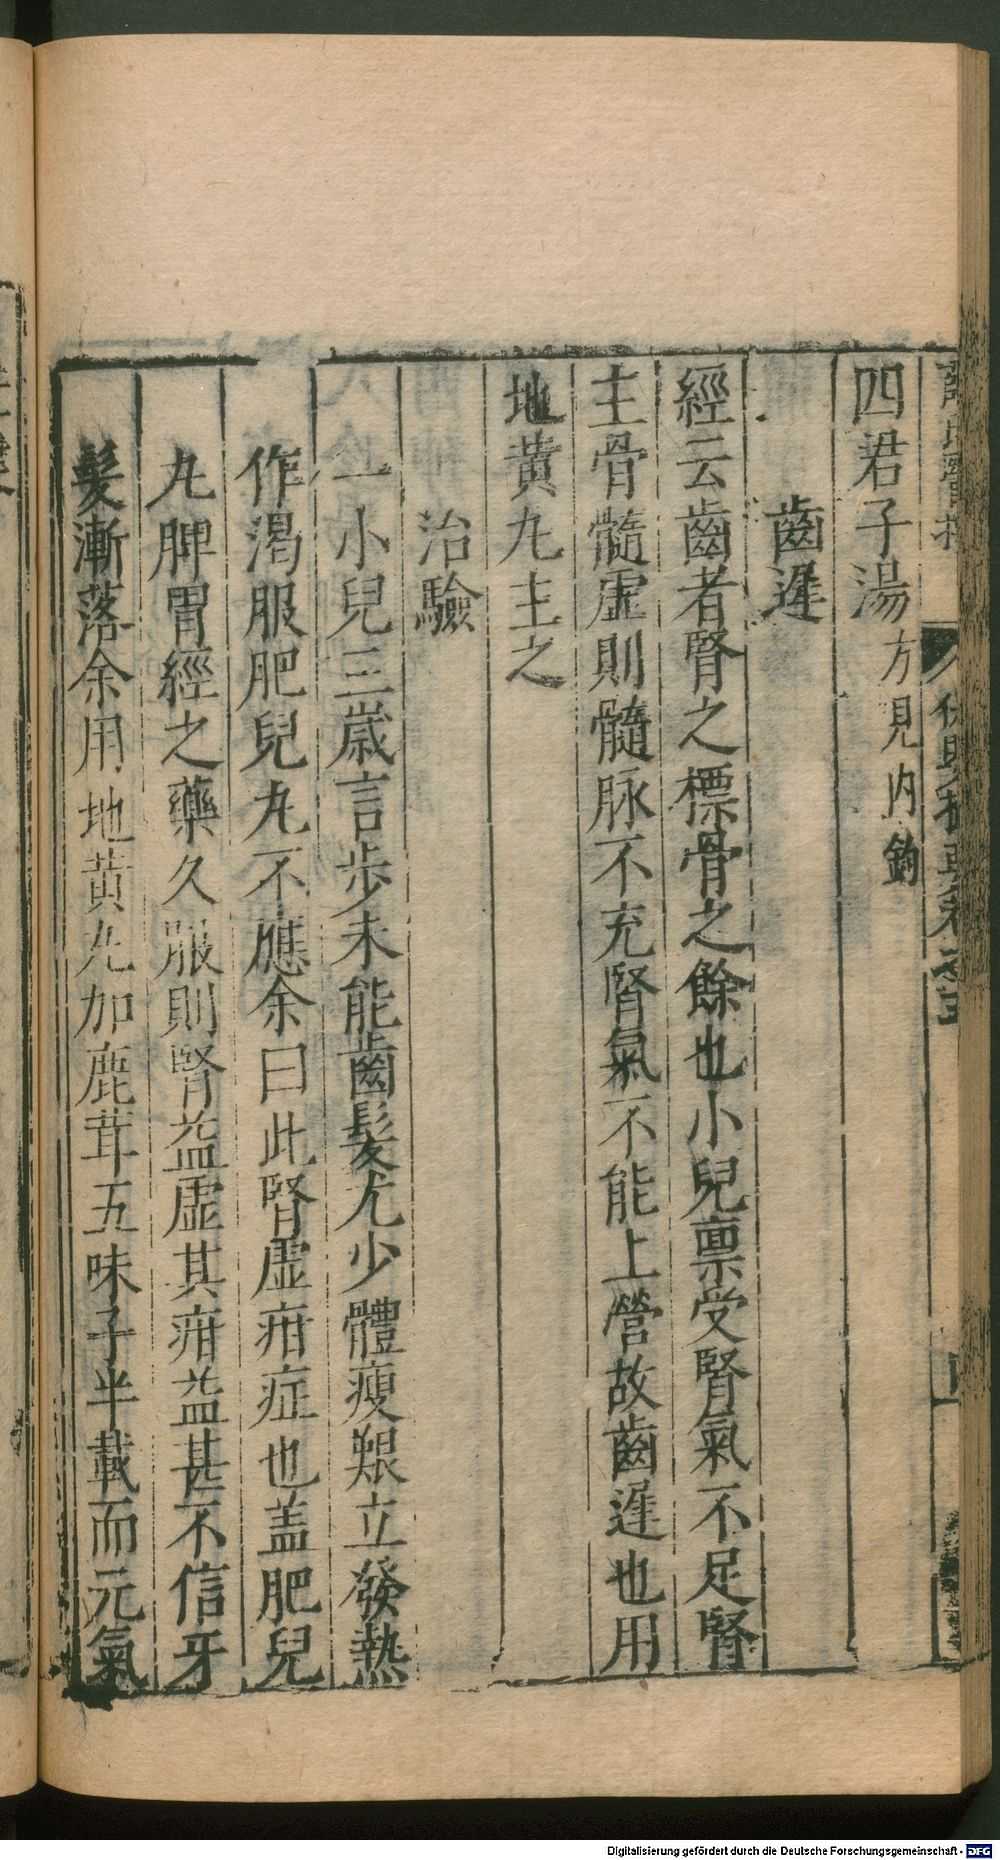 四君子湯方見內鈎
齒遲
經云齒者腎之標骨之餘也小兒禀受腎氣不足腎
主骨髓虛則髓脉不充腎氣不能上營故齒遲也用
地黄九主之
治驗
一小兒三歲言步未能齒髮尤少體瘦艱立發熱
作渴服肥兒丸不應余曰此腎虛疳症也盖肥兒
丸脾胃經之藥久服則腎益虛其疳益甚不信牙
髮漸落余用地黄丸加鹿茸五味子半載而元氣
Digitalisierung gefördert durch die Deutsche Forschungsgemeinschaft - DFG